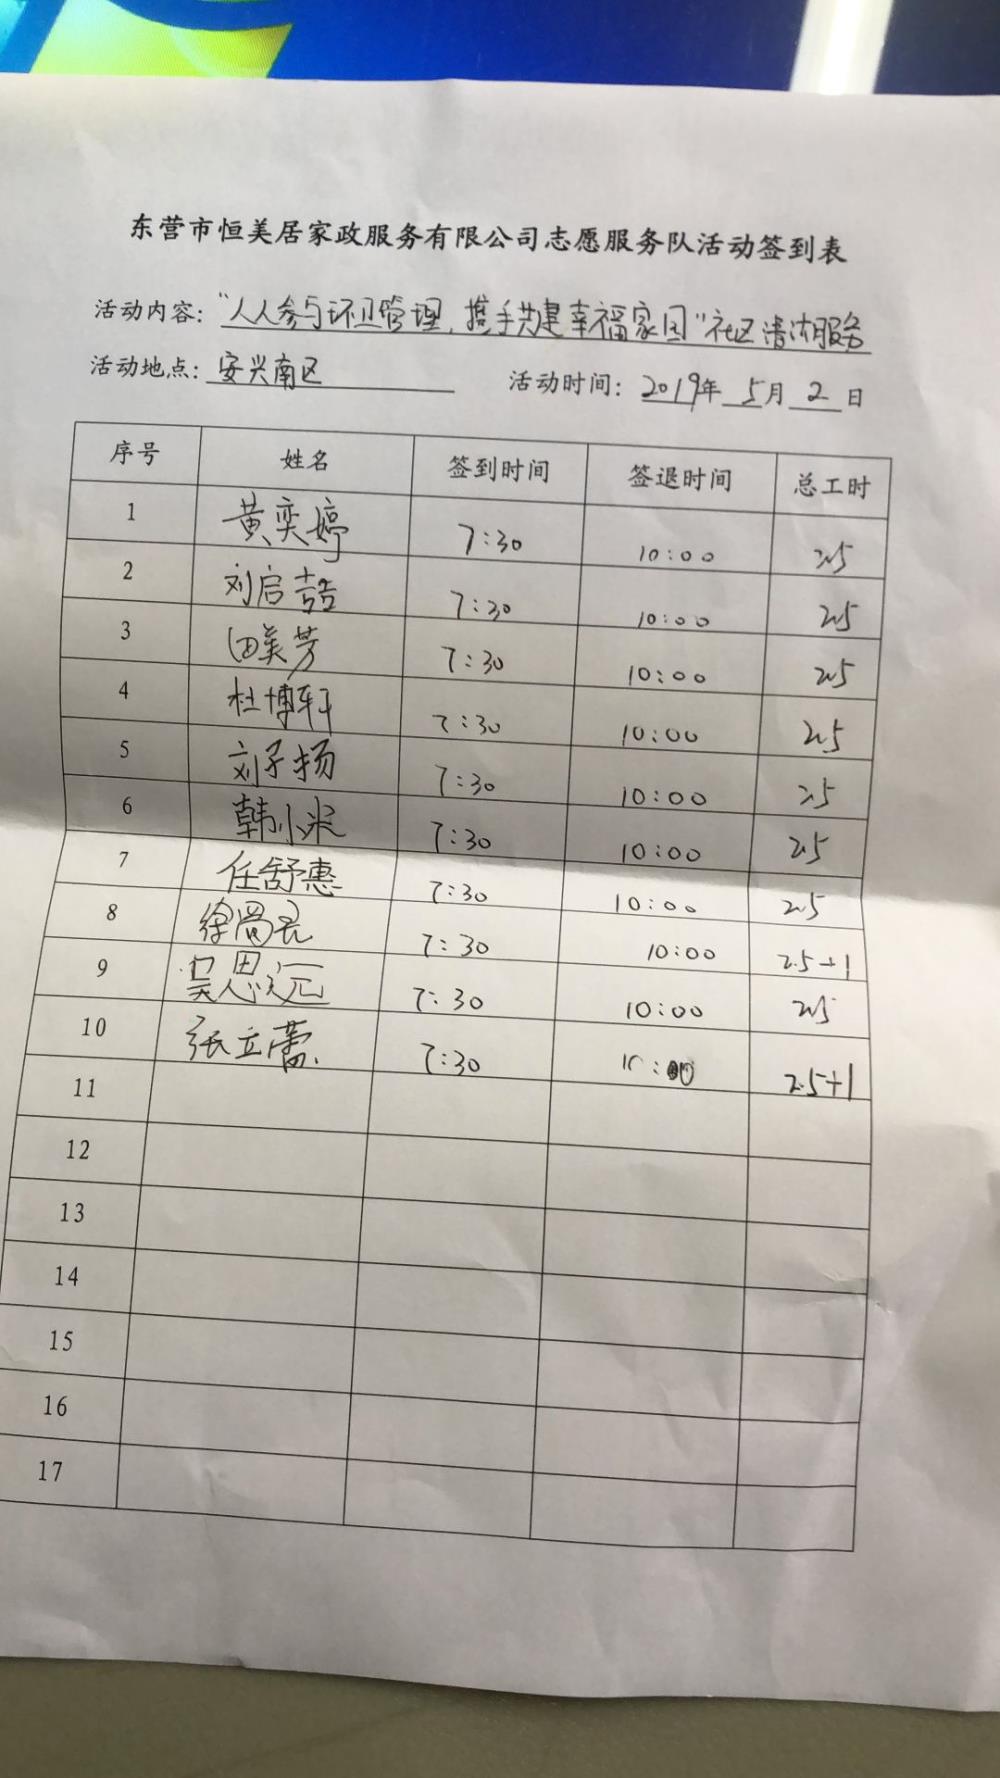 东营市恒美居家政服务有限公司志愿服务队活动签到表
活动内容："人人参与环卫管理，携手共建幸福家园"社区清洁服务
活动地点：安兴南区 活动时间：2019年 5月 2日
序号 姓名 签到时间 签退时间 总工时
1 黄奕婷 7:30 10:00 2.5
2 刘启喆 7:30 10:00 2.5
3 田美芳 7:30 10:00 2.5
4 杜博轩 7:30 10:00 2.5
5 刘子扬 7:30 10:00 2.5
6 韩小米 7:30 10:00 2.5
7 任舒惠 7:30 10:00 2.5
8 徐 7:30 10:00 2.5+1
9 吴思远 7:30 10:00 2.5
10 张立蕾 7:30 10:00 2.5+1
11
12
13
14
15
16
17